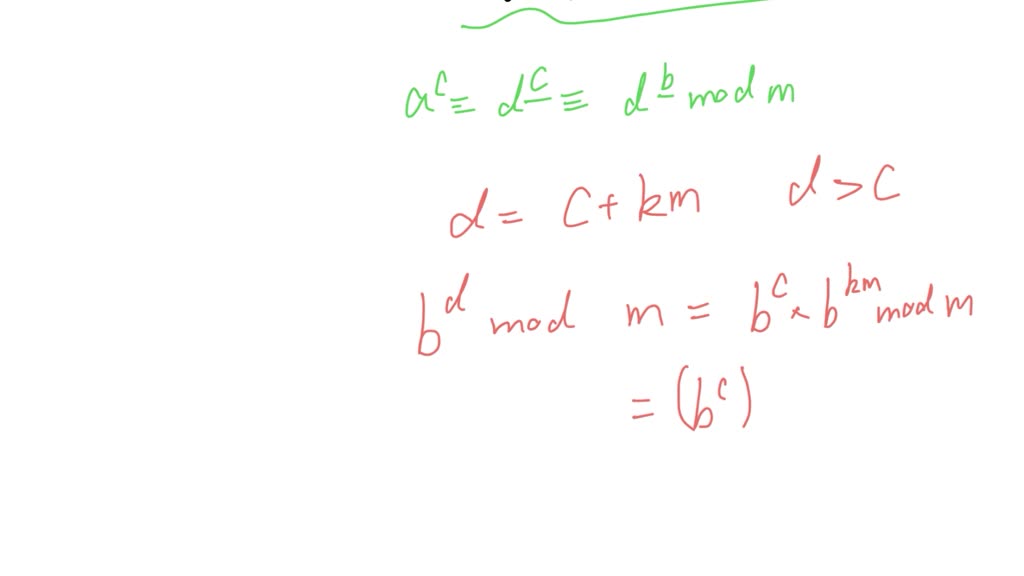 a^c ≡ d^c ≡ d^b mod m
d = c + km d > c
b^d mod m = b^c × b^km mod m
= (b^c)